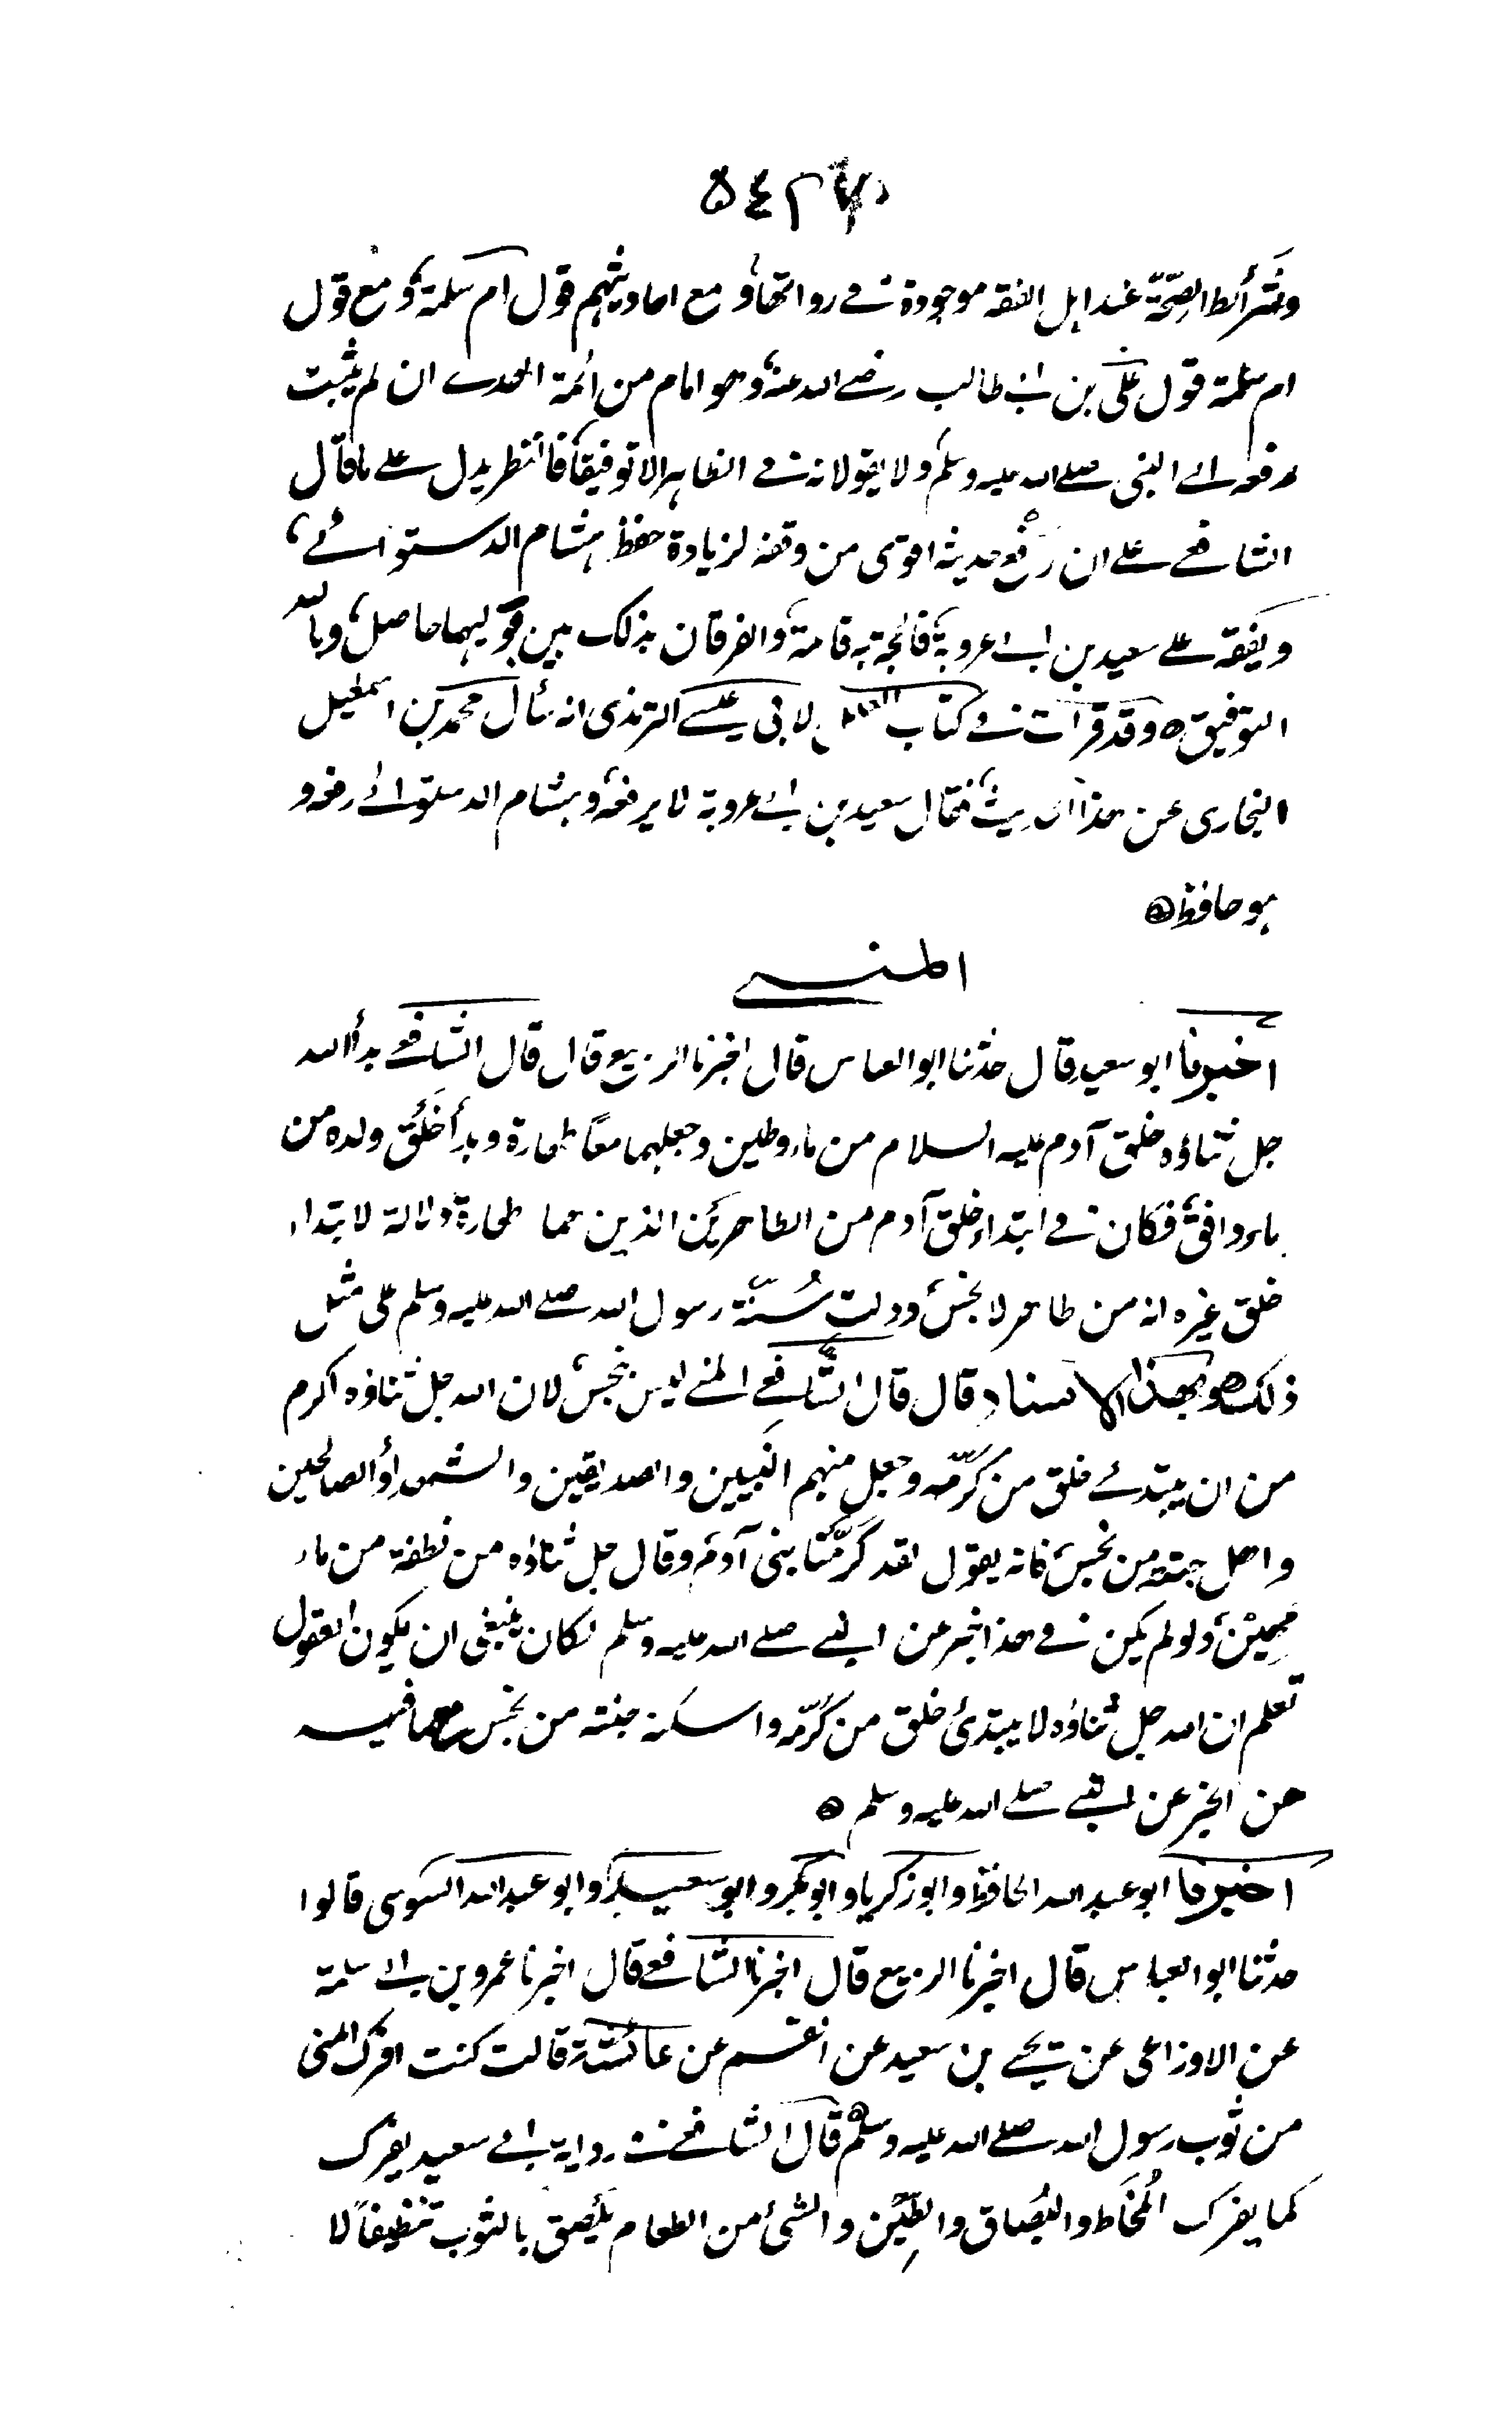 وشرائط الصحّة عند اهل الفقه موجودة فى رواتها، ومع احاديثهم قول ام سلمة، ومع قول
ام سلمة قول على بن ابى طالب رضى الله عنه، وهو امام من ائمة الهدى ان لم يثبت
رفعه الى النبى صلى الله عليه وسلم ولا يقولانه فى الظاهر الا توفيقاً فالنظر يدل على ما قال
الشافعى على ان رفع حديثه اقوى من وقفه لزيادة حفظ هشام الدستوائى،
وتفقه على سعيد بن ابى عروبة فالحجة به قائمة، والفرقان بذلك بين بوليهما حاصل، وبالله
التوفيق ه وقد قرأت فى كتاب العلل لابى عيسى الترمذى انه سأل محمد بن اسمعيل
البخارى عن هذا الحديث، فقال سعيد بن ابى عروبة لا يرفعه، وهشام الدستوائى رفعه و
هو حافظ ه
المنى
اخبرنا ابو سعيد قال حدثنا ابو العباس قال اخبرنا الربيع قال قال الشافعى بدأ الله
جل ثناؤه خلق آدم عليه السلام من ماء وطين وجعلهما معًا طهارة وبدأ خلق ولده من
ماء دافق، فكان فى ابتداء خلق آدم من الطاهرين الذين هما طهارة، دلالة لابتداء
خلق غيره انه من طاهر لا نجس، ودلت سُنّة رسول الله صلى الله عليه وسلم على مثل
ذلك ه وبهذا الاسناد قال قال الشافعى المنى ليس بنجس، لان الله جل ثناؤه اكرم
من ان يبتدئ خلق من كرّمه وجعل منهم النبيين والصديقين والشهداء والصالحين
واهل جنته من نجس، فانه يقول لقد كرّمنا بنى آدم، وقال جل ثناؤه من نطفة من ماء
مهين، ولو لم يكن فى هذا خبر عن النبى صلى الله عليه وسلم لكان ينبغى ان يكون العقول
تعلم ان الله جل ثناؤه لا يبتدئ خلق من كرّمه واسكنه جنته من نجس مع ما فيه
من الخبر عن النبى صلى الله عليه وسلم ه
اخبرنا ابو عبد الله الحافظ وابو زكريا وابو بكر وابو سعيد وابو عبد الله السوسى قالوا
حدثنا ابو العباس قال اخبرنا الربيع قال اخبرنا الشافعى قال اخبرنا عمرو بن ابى سلمة
عن الاوزاعى عن يحيى بن سعيد عن القسم عن عائشة قالت كنت افرك المنى
من ثوب رسول الله صلى الله عليه وسلم ه قال الشافعى فى رواية ابى سعيد يفرك
كما يفرك المُخَاط والبُصَاق والطِّين والشئ من الطعام يلصق بالثوب تنظيفاً لا